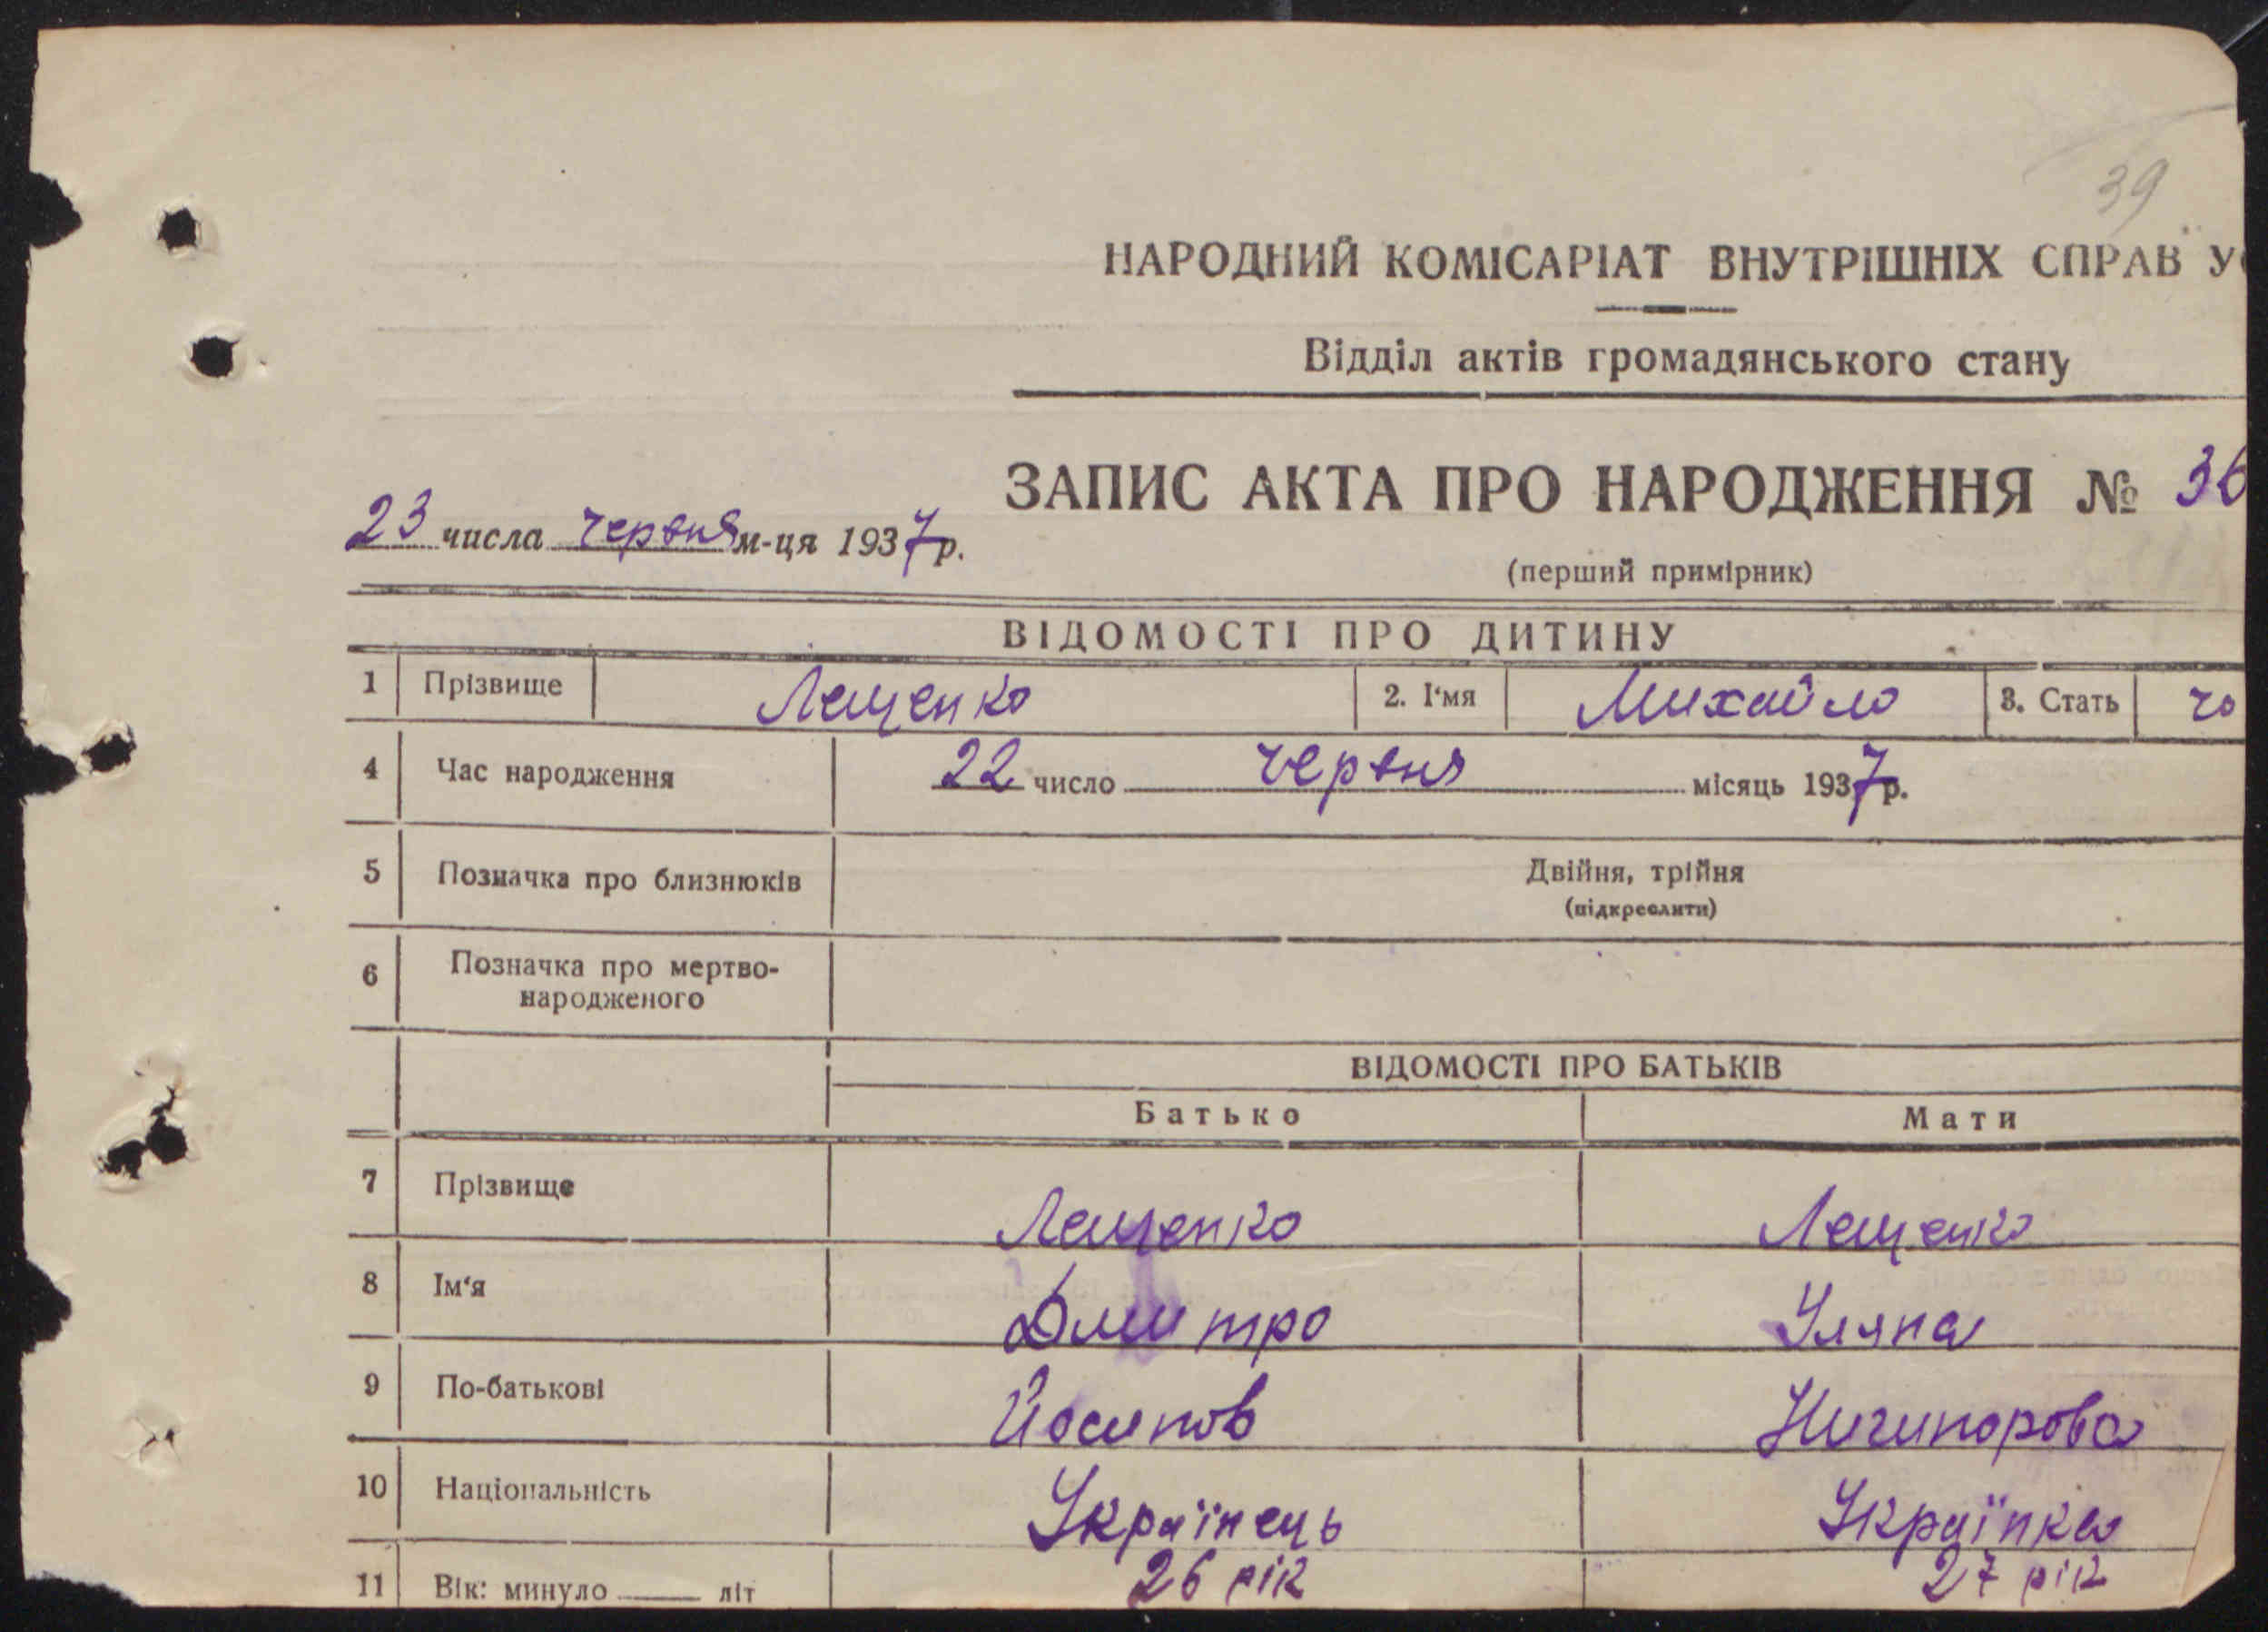 39
НАРОДНИЙ КОМІСАРІАТ ВНУТРІШНІХ СПРАВ У
Відділ актів громадянського стану
ЗАПИС АКТА ПРО НАРОДЖЕННЯ № 36
23 числа червня м-ця 1937 р.
(перший примірник)
ВІДОМОСТІ ПРО ДИТИНУ
1 Прізвище Лещенко 2. І'мя Михайло 3. Стать чо
4 Час народження 22 число червня місяць 1937 р.
5 Позначка про близнюків Двійня, трійня
(підкреслити)
6 Позначка про мертво-
народженого
ВІДОМОСТІ ПРО БАТЬКІВ
Батько Мати
7 Прізвище Лещенко Лещенко
8 Ім'я Дмитро Уляна
9 По-батькові Йосипов Ничипорова
10 Національність Українець Українка
11 Вік: минуло ____ літ 26 рік 27 рік